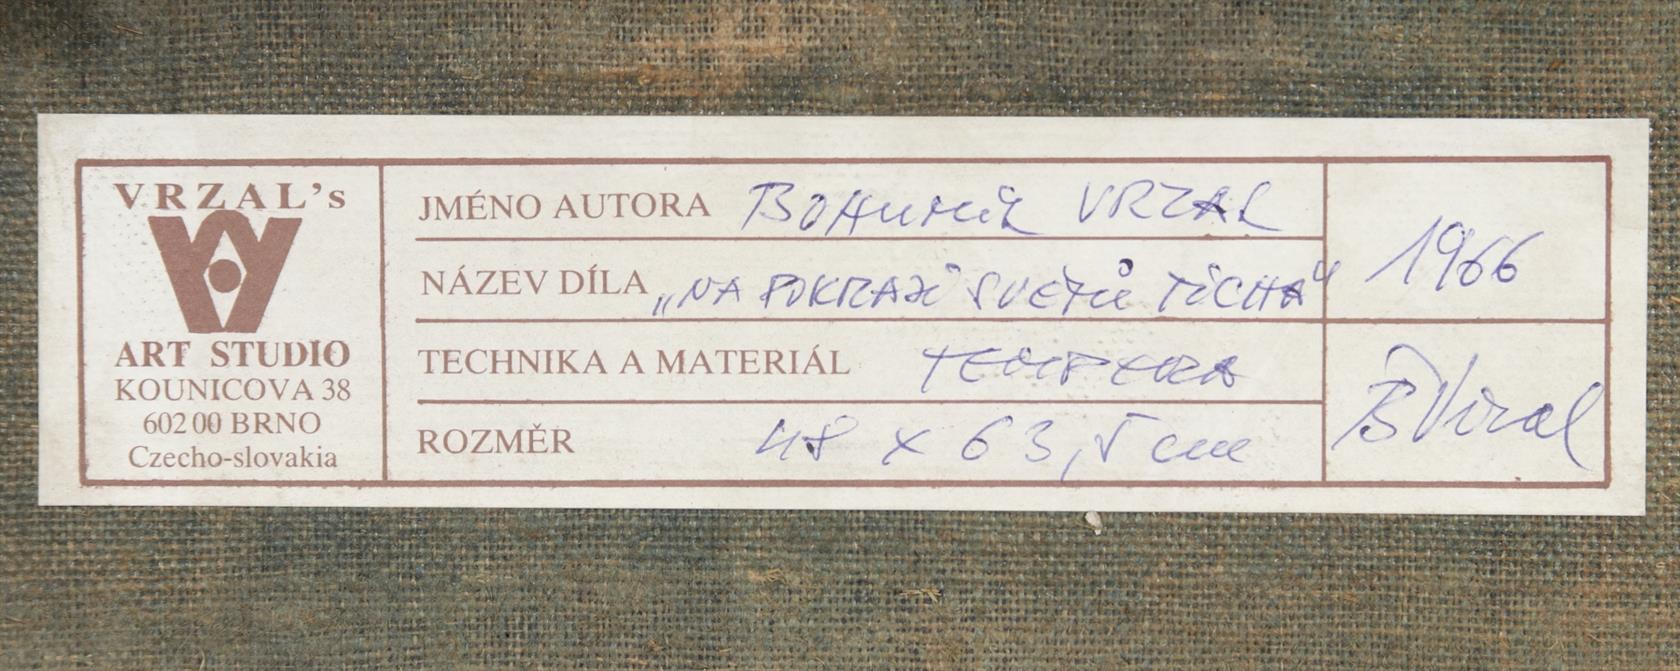 VRZAL's
ART STUDIO
KOUNICOVA 38
602 00 BRNO
Czecho-slovakia
JMÉNO AUTORA BOHUMIL VRZAL
NÁZEV DÍLA „NA POKRAJI SVĚTŮ TICHA"
TECHNIKA A MATERIÁL TEMPERA
ROZMĚR 48 x 63,5 cm
1966
B Vrzal